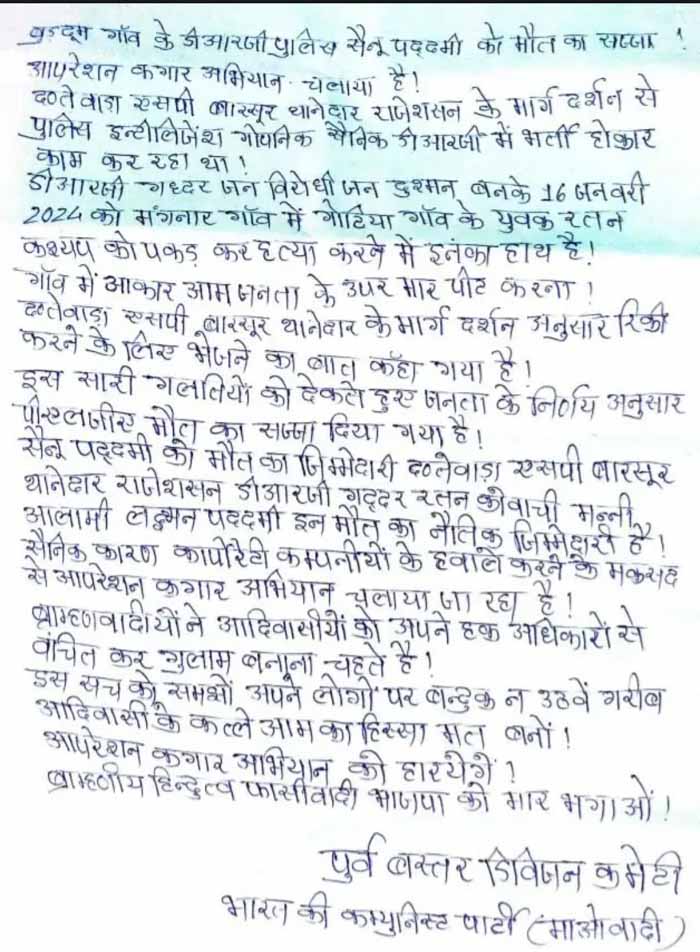 वुडदूम गाँव के डीआरजी पुलिस सैनू पद्दमी को मौत का सज्जा !
आपरेशन कगार अभियान चलाया है !
दन्तेवाड़ा एसपी बारसूर थानेदार राजेशसन के मार्ग दर्शन से
पुलिस इन्टीलिजेंश गोपनिक सैनिक डीआरजी में भर्ती होकार
काम कर रहा था !
डीआरजी गध्दर जन विरोधी जन दुश्मन बनके 16 जनवरी
2024 को मंगनार गाँव में गोहिया गाँव के युवक रतन
कश्यप को पकड़ कर हत्या करने में इनका हाथ है !
गाँव में आकार आम जनता के उपर मार पीट करना !
दन्तेवाड़ा एसपी बारसूर थानेदार के मार्ग दर्शन अनुसार रिकी
करने के लिए भेजने का बात कहाँ गया है !
इस सारी गलतियों को देकते हुए जनता के निर्णय अनुसार
पीएलजीए मौत का सज्जा दिया गया है !
सैनू पद्दमी को मौत का जिमेदारी दन्तेवाड़ा एसपी बारसूर
थानेदार राजेशसन डीआरजी गद्दर रतन कोवाची मन्नी
आलामी लक्ष्मन पद्दमी इन मौत का नैतिक जिम्मेदारी है !
सैनिक कारण कार्पोरेटी कम्पनीयों के हवाले करने के मकसद
से आपरेशन कगार अभियान चलाया जा रहा है !
ब्राम्हणवादीयों ने आदिवासीयों को अपने हक अधिकारों से
वंचित कर गुलाम बनाना चहते है !
इस सच को समझों अपने लोगों पर बन्दुक न उठवें गरीब
आदिवासी के कत्ले आम का हिस्सा मत बनों !
आपरेशन कगार अभियान को हारयेगें !
ब्राम्हणीय हिन्दुत्व फासीवादी भाजपा को मार भगाओं !
पुर्व बस्तर डिविजन कमेटी
भारत की कम्युनिस्ट पार्टी (माओवादी)